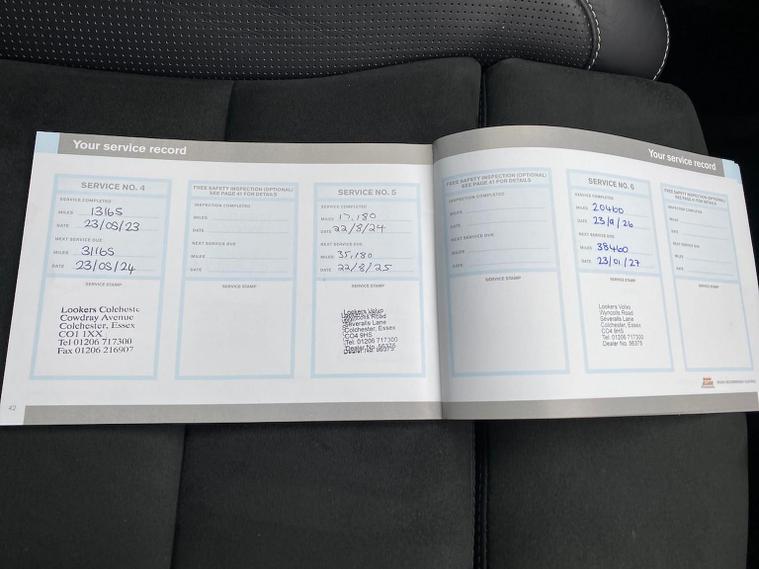 Your service record
SERVICE NO. 4
SERVICE COMPLETED
MILES 13165
DATE 23/05/23
NEXT SERVICE DUE
MILES 31165
DATE 23/05/24
SERVICE STAMP
Lookers Colcheste
Cowdray Avenue
Colchester, Essex
CO1 1XX
Tel 01206 717300
Fax 01206 216907
FREE SAFETY INSPECTION (OPTIONAL)
SEE PAGE 41 FOR DETAILS
INSPECTION COMPLETED
MILES
DATE
NEXT SERVICE DUE
MILES
DATE
SERVICE STAMP
SERVICE NO. 5
SERVICE COMPLETED
MILES 17,180
DATE 22/8/24
NEXT SERVICE DUE
MILES 35,180
DATE 22/8/25
SERVICE STAMP
Lookers Volvo
Wyncolls Road
Severalls Lane
Colchester, Essex
CO4 9HS
Tel. 01206 717300
Dealer No. 56375
42
Your service record
FREE SAFETY INSPECTION (OPTIONAL)
SEE PAGE 41 FOR DETAILS
INSPECTION COMPLETED
MILES
DATE
NEXT SERVICE DUE
MILES
DATE
SERVICE STAMP
SERVICE NO. 6
SERVICE COMPLETED
MILES 20460
DATE
NEXT SERVICE DUE
MILES 38460
DATE 23/01/27
SERVICE STAMP
Lookers Volvo
Wyncolls Road
Severalls Lane
Colchester, Essex
CO4 9HS
Tel: 01206 717300
Dealer No. 56375
FREE SAFETY INSPECTION (OPTIONAL)
SEE PAGE 41 FOR DETAILS
INSPECTION COMPLETED
MILES
DATE
NEXT SERVICE DUE
MILES
DATE
SERVICE STAMP